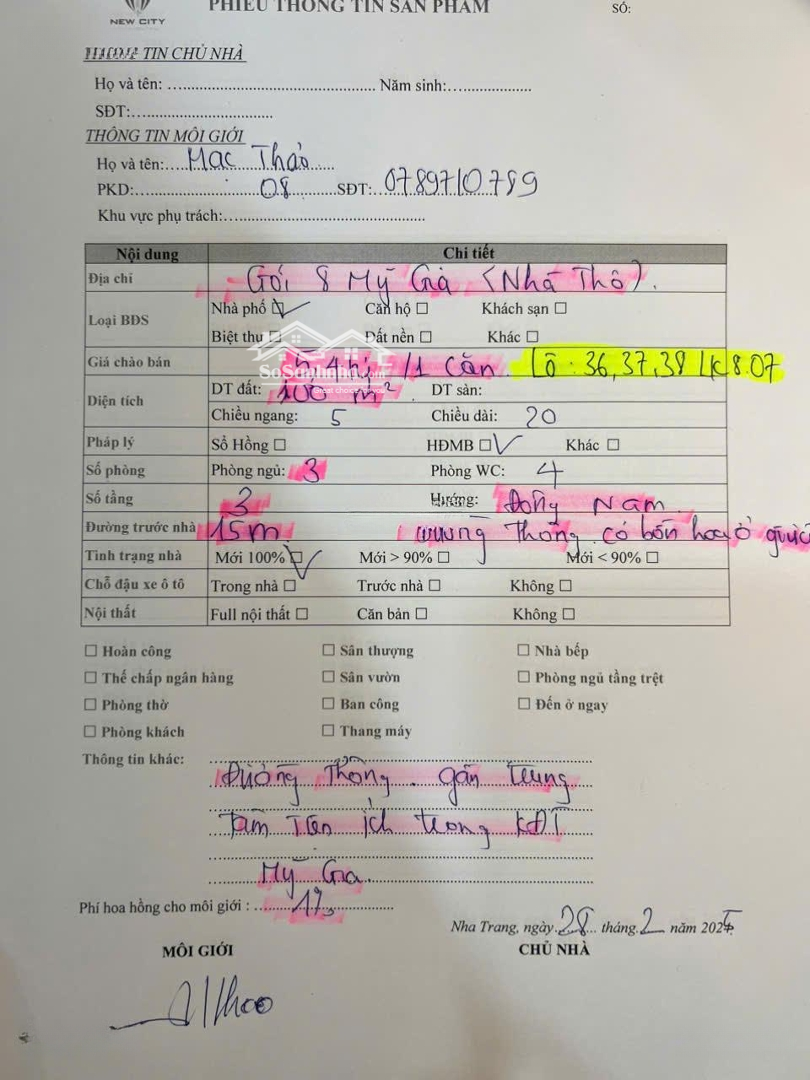 NEW CITY
PHIẾU THÔNG TIN SẢN PHẨM
SỐ:
TIN CHỦ NHÀ
Họ và tên: Năm sinh:
SĐT:
THÔNG TIN MÔI GIỚI
Họ và tên: Mạc Thảo
PKD: 08 SĐT: 0789710789
Khu vực phụ trách:
Nội dung Chi tiết
Địa chỉ Gói 8 Mỹ Gia (Nhà Thô).
Loại BĐS Nhà phố ☑ Căn hộ ☐ Khách sạn ☐
Biệt thự ☐ Đất nền ☐ Khác ☐
Giá chào bán /1 căn. Lô: 36, 37, 38 LK 8.07
Diện tích DT đất: 100 m² DT sàn:
Chiều ngang: 5 Chiều dài: 20
Pháp lý Sổ Hồng ☐ HĐMB ☑ Khác ☐
Số phòng Phòng ngủ: 3 Phòng WC: 4
Số tầng 3 Hướng: Đông Nam
Đường trước nhà 15m Đường Thông có bồn hoa ở giữa
Tình trạng nhà Mới 100% ☑ Mới > 90% ☐ Mới < 90% ☐
Chỗ đậu xe ô tô Trong nhà ☐ Trước nhà ☐ Không ☐
Nội thất Full nội thất ☐ Căn bản ☐ Không ☐
☐ Hoàn công ☐ Sân thượng ☐ Nhà bếp
☐ Thế chấp ngân hàng ☐ Sân vườn ☐ Phòng ngủ tầng trệt
☐ Phòng thờ ☐ Ban công ☐ Đến ở ngay
☐ Phòng khách ☐ Thang máy
Thông tin khác:
Đường Thông. gần trung
tâm Tiện ích trong KĐT
Mỹ Gia.
Phí hoa hồng cho môi giới : 1%
Nha Trang, ngày 28 tháng 2 năm 2025
MÔI GIỚI CHỦ NHÀ
SoSanhNha.com